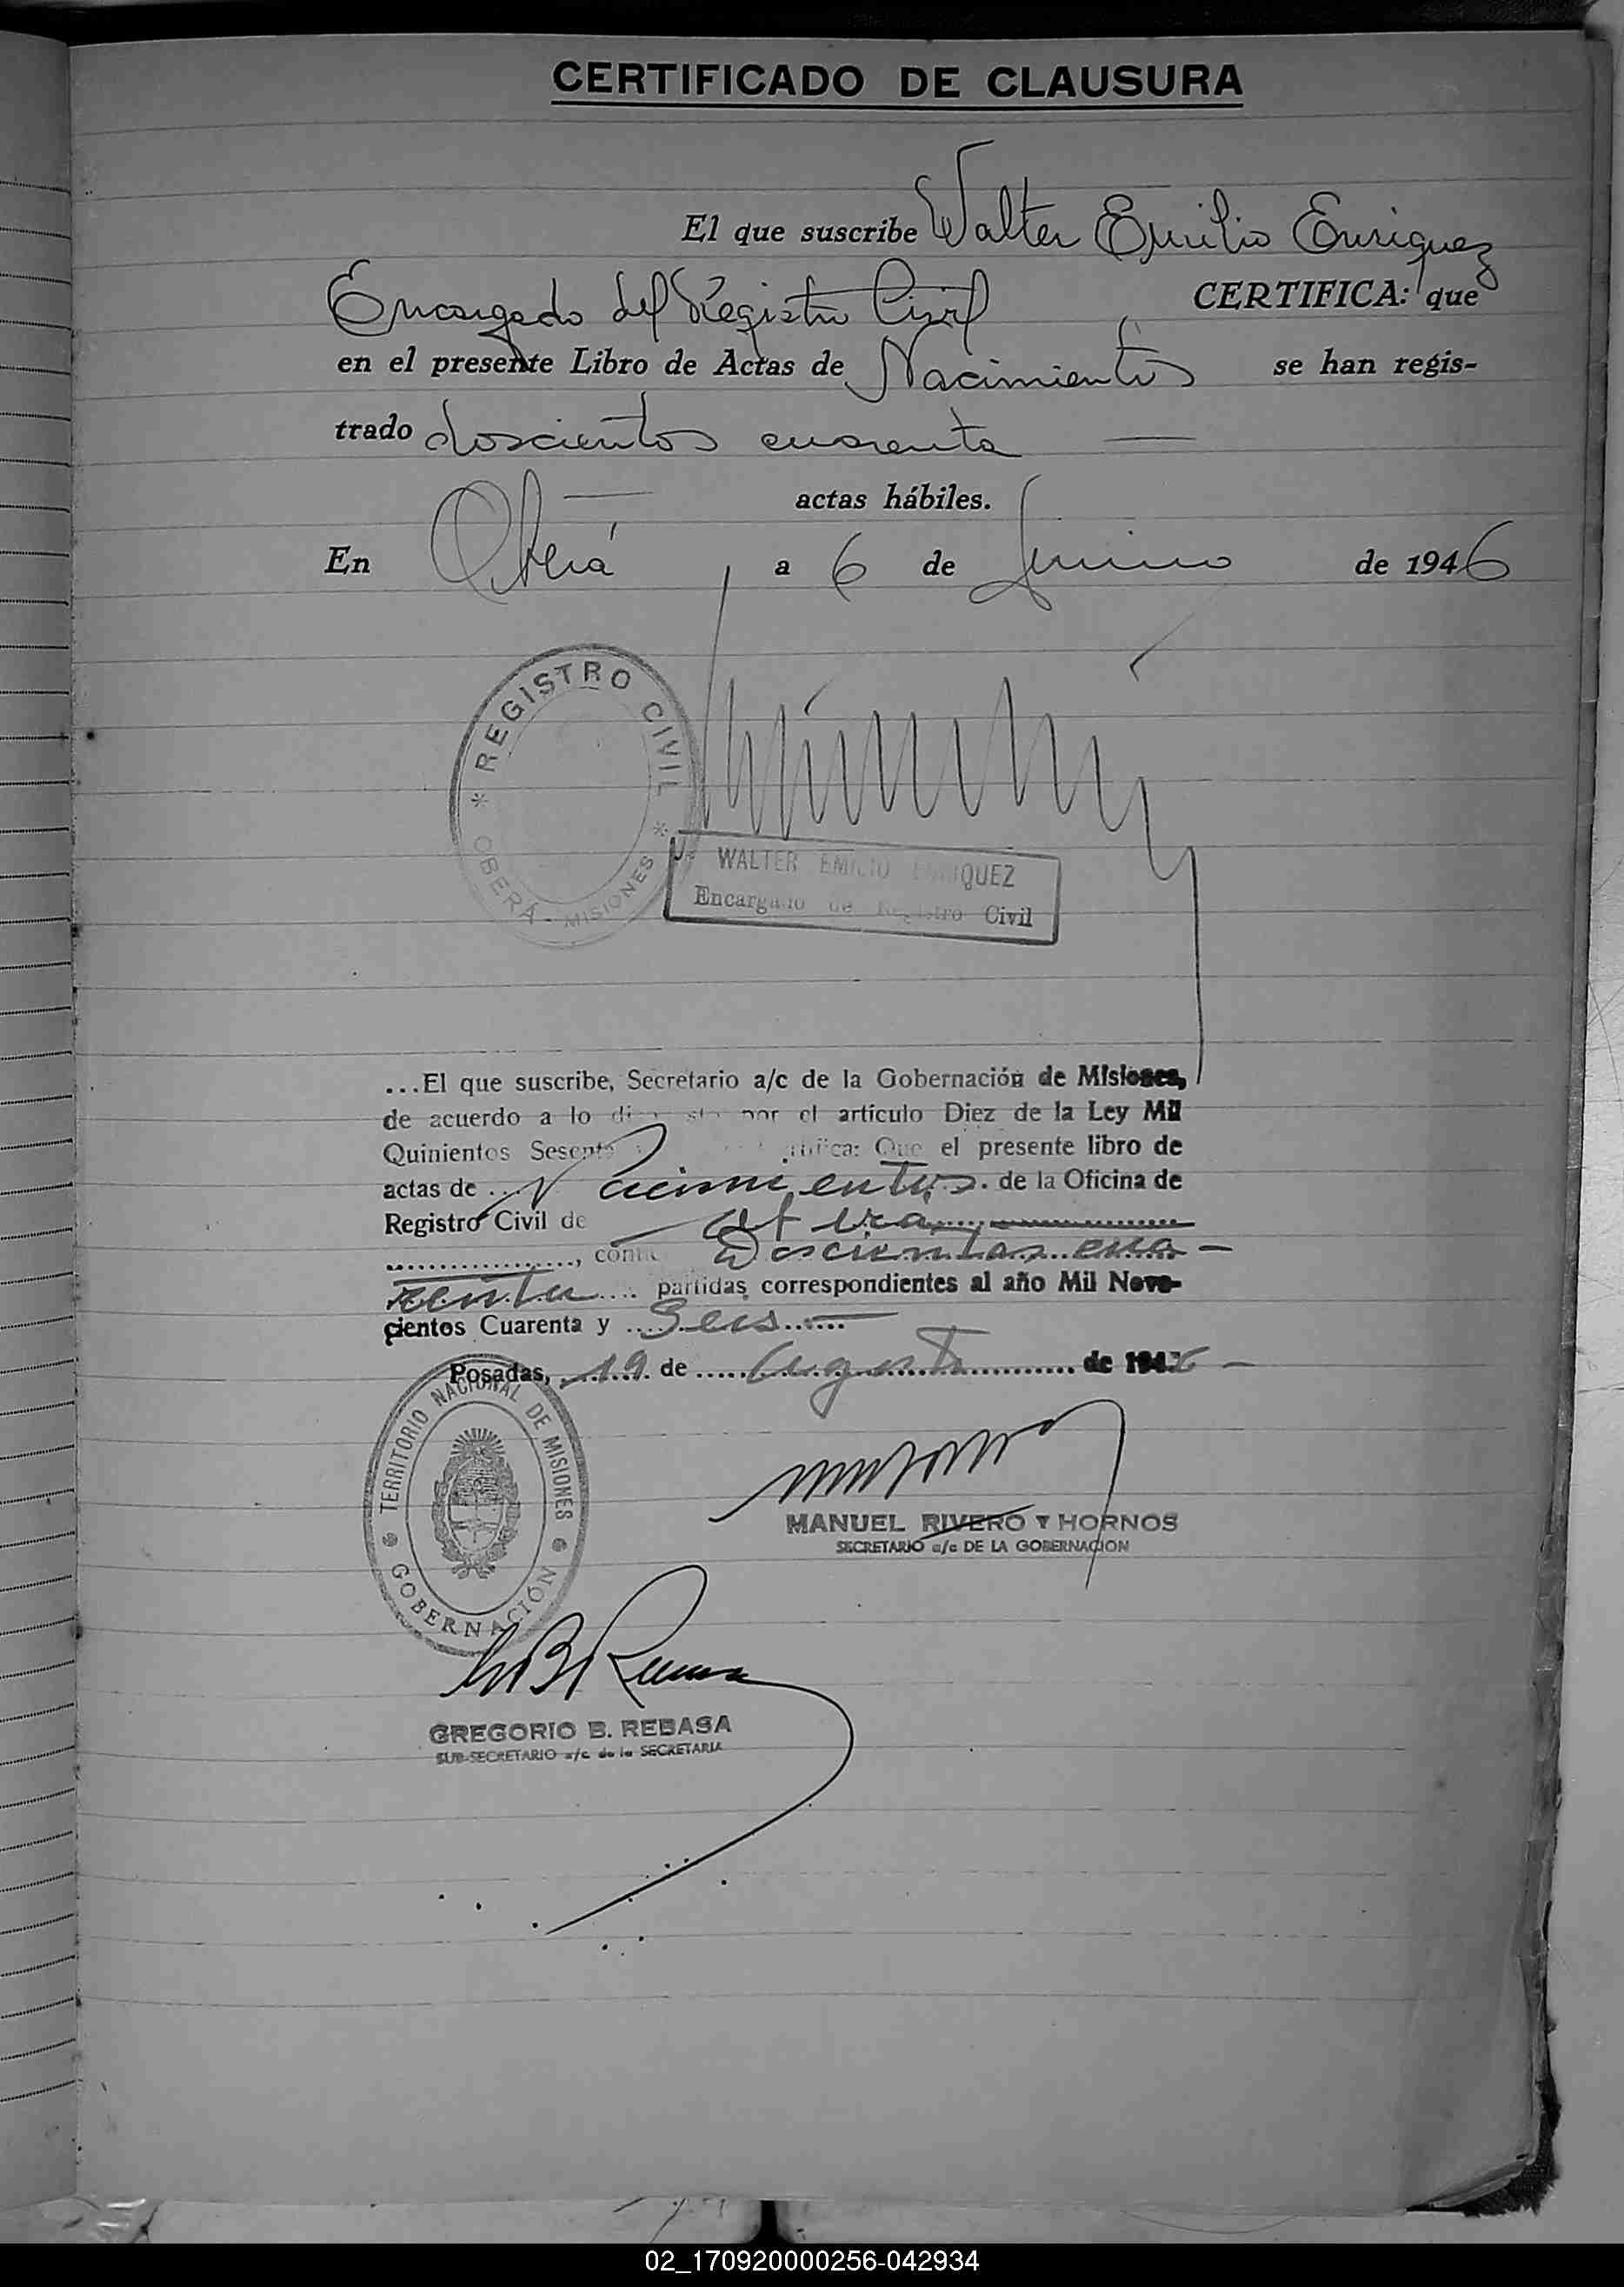 CERTIFICADO DE CLAUSURA
El que suscribe Walter Emilio Enriquez
Encargado del Registro Civil CERTIFICA: que
en el presente Libro de Actas de Nacimientos se han regis-
trado doscientos cuarenta —
— actas hábiles.
En Oberá a 6 de Junio de 1946
* REGISTRO CIVIL *
OBERÁ - MISIONES
WALTER EMILIO ENRIQUEZ
Encargado de Registro Civil
...El que suscribe, Secretario a/c de la Gobernación de Misiones,
de acuerdo a lo dispuesto por el artículo Diez de la Ley Mil
Quinientos Sesenta Que el presente libro de
actas de Nacimientos. de la Oficina de
Registro Civil de Oberá
Doscientas cua-
renta partidas correspondientes al año Mil Nove-
cientos Cuarenta y Seis
Posadas, 19 de Agosto de 1946 —
TERRITORIO NACIONAL DE MISIONES
GOBERNACIÓN
MANUEL RIVERO Y HORNOS
SECRETARIO a/c DE LA GOBERNACION
GREGORIO B. REBASA
SUB-SECRETARIO a/c de la SECRETARIA
02_170920000256-042934